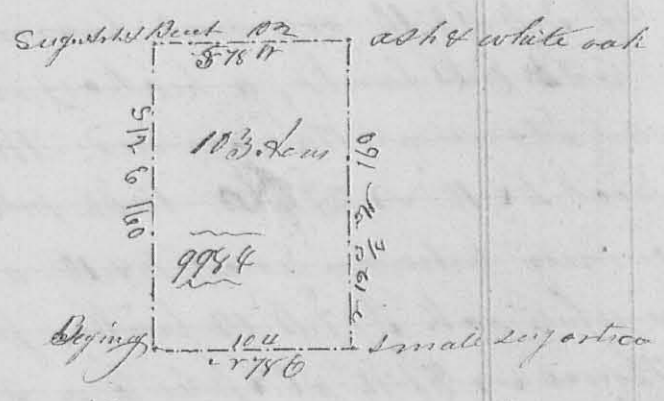 Sugartree & Beech 102 ash & white oak
S 78 W
S 12 E 160
103 Acres
N 12 W 160
9984
Begining 104 small sugartree
N 78 E